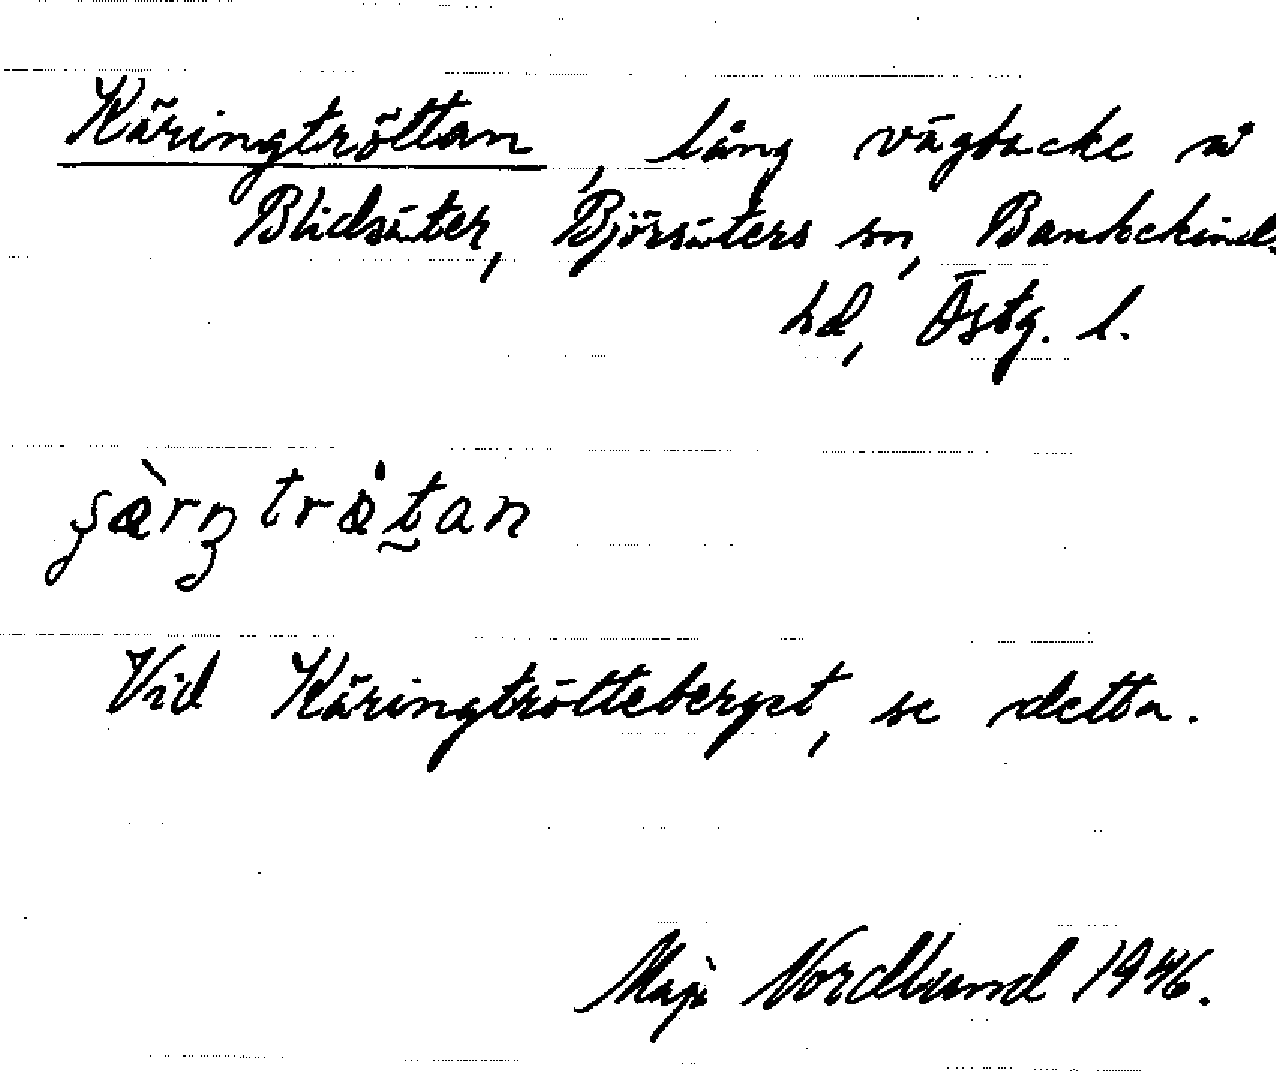 Käringtröttan, lång vägbacke å
Blidsäter, Björsäters sn, Bankekinds
hd, Östg. l.
Vid Käringtrötteberget, se detta.
Maja Nordlund 1946.